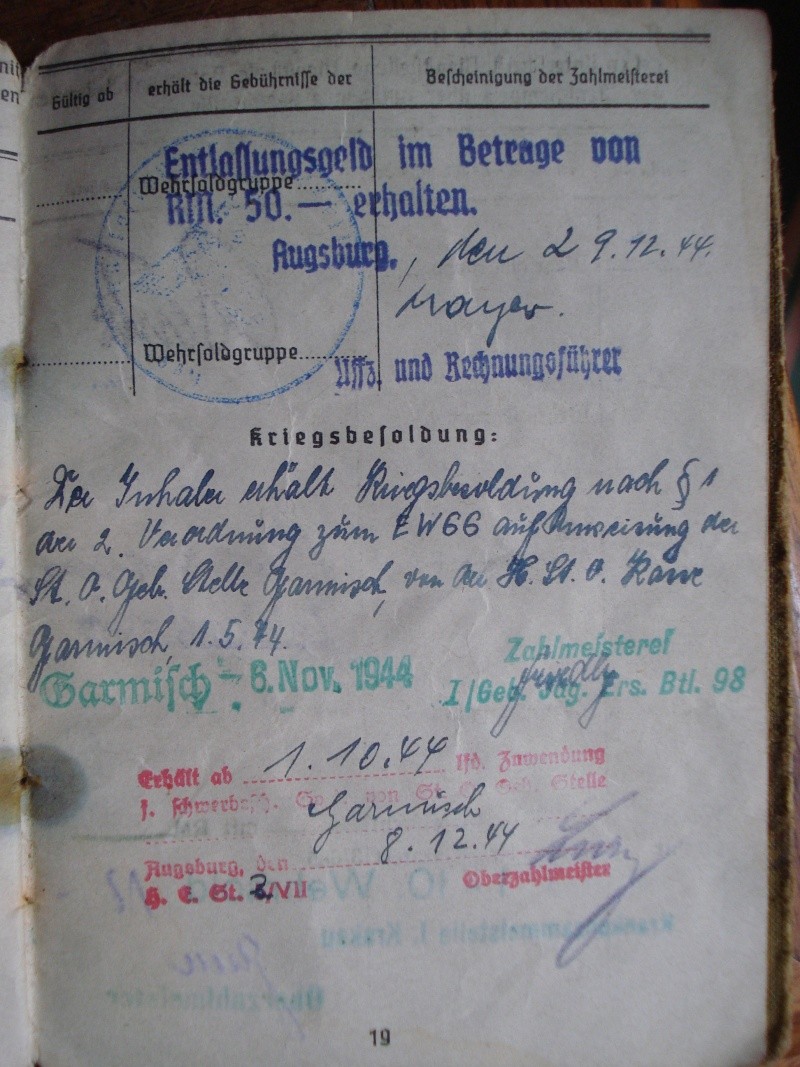 Gültig ab erhält die Gebührnisse der Bescheinigung der Zahlmeisterei
Entlassungsgeld im Betrage von
Wehrsoldgruppe
RM. 50.— erhalten.
Augsburg, den 29.12.44.
Mayer.
Wehrsoldgruppe
Uffz. und Rechnungsführer
Kriegsbesoldung:
Der Inhaber erhält Kriegsbesoldung nach § 1
der 2. Verordnung zum EWGG auf Anweisung der
St. O. Geb. Stelle Garmisch, von der H. St. O. Kasse
Garmisch, 1.5.44.
Garmisch - 6. Nov. 1944
Zahlmeisterei
I/Geb. Jäg. Ers. Btl. 98
Erhält ab 1.10.44 lfd. Zuwendung
f. schwerbesch. von St. O. Geb. Stelle
Garmisch
8.12.44
Augsburg, den
H. E. St. 2/VII
Oberzahlmeister
Krankensammelstelle I. Krakau
Oberzahlmeister
19